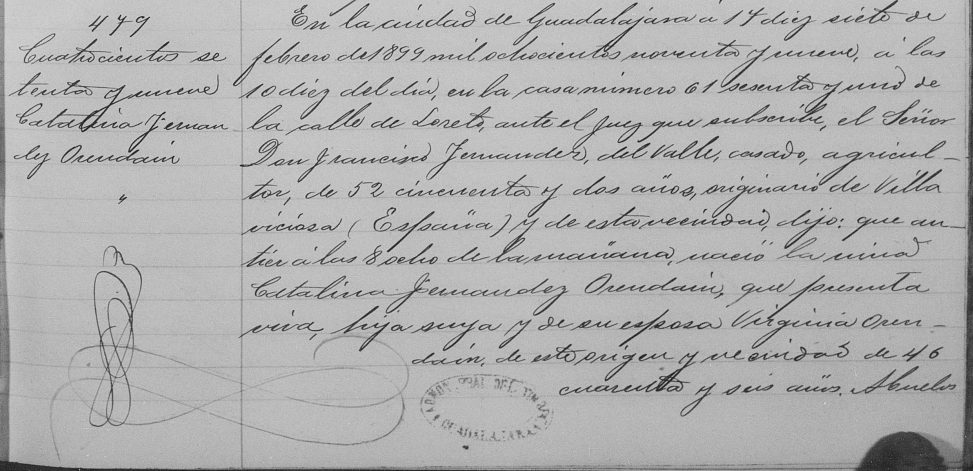 479
Cuatrocientos se
tenta y nueve
Catalina Fernan-
dez Orendain
"
En la ciudad de Guadalajara a 17 diez siete de
febrero de 1899 mil ochocientos noventa y nueve, á las
10 diez del día, en la casa número 61 sesenta y uno de
la calle de Loreto, ante el Juez que subscribe, el Señor
Don Francisco Fernandez, del Valle, casado, agricul-
tor, de 52 cincuenta y dos años, originario de Villa
viciosa (España) y de esta vecindad, dijo: que an-
tier á las 8 ocho de la mañana, nació la niña
Catalina Fernandez Orendain, que presenta
viva, hija suya y de su esposa Virginia Oren-
dain, de este origen y vecindad de 46
cuarenta y seis años. Abuelos
GUADALAJARA